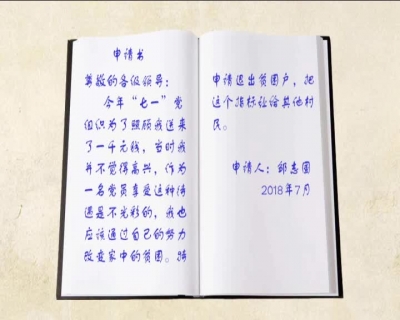 申请书
尊敬的各级领导：
今年“七一”党
组织为了照顾我送来
了一千元钱，当时我
并不觉得高兴，作为
一名党员享受这种待
遇是不光彩的，我也
应该通过自己的努力
改变家中的贫困。特
申请退出贫困户，把
这个指标让给其他村
民。
申请人：邹志国
2018年7月